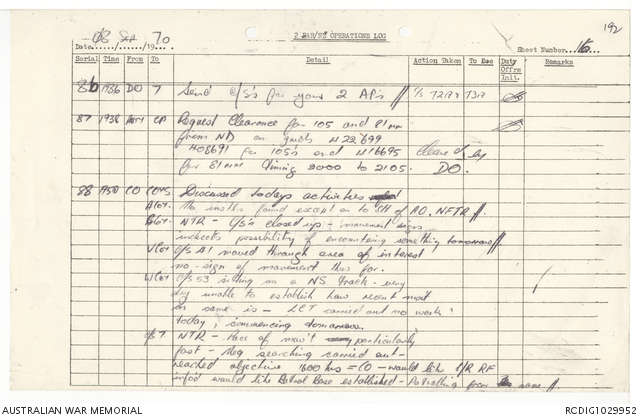 192
08 Sep 70
2 RAR/NZ OPERATIONS LOG
Date....../....../19...
Sheet Number 16
Serial Time From To Detail Action Taken To Sec Duty Offrs Init. Remarks
86 1936 DO 7 Send C/S's for your 2 AP's // C/S 72A 73A
87 1938 Arty CP Request Clearance for 105 and 81mm
from ND on grids 422699
408691 for 105's and 416695 Cleared by
for 81mm timing 2000 to 2105. DO.
88 1950 CO COYS Discussed todays activities
A Coy. No found except on to of A.O. NFTR //.
B Coy. NTR - C/S's closed up - movement signs
indicate possibility of encountering something tomorrow //
V Coy C/S 41 moved through area of interest
no - sign of movement thus far.
W Coy C/S 53 sitting on a NS track - very
dry unable to establish how recent mov't
on same is - LCT carried out no work
today, commencing tomorrow.
C/S 7 NTR - Pace of mov't particularly
fast - They searching carried out -
reached objective 1600 hrs = CO - would like RF
info'd would like Patrol Base established - Patrolling from same //.
AUSTRALIAN WAR MEMORIAL
RCDIG1029952